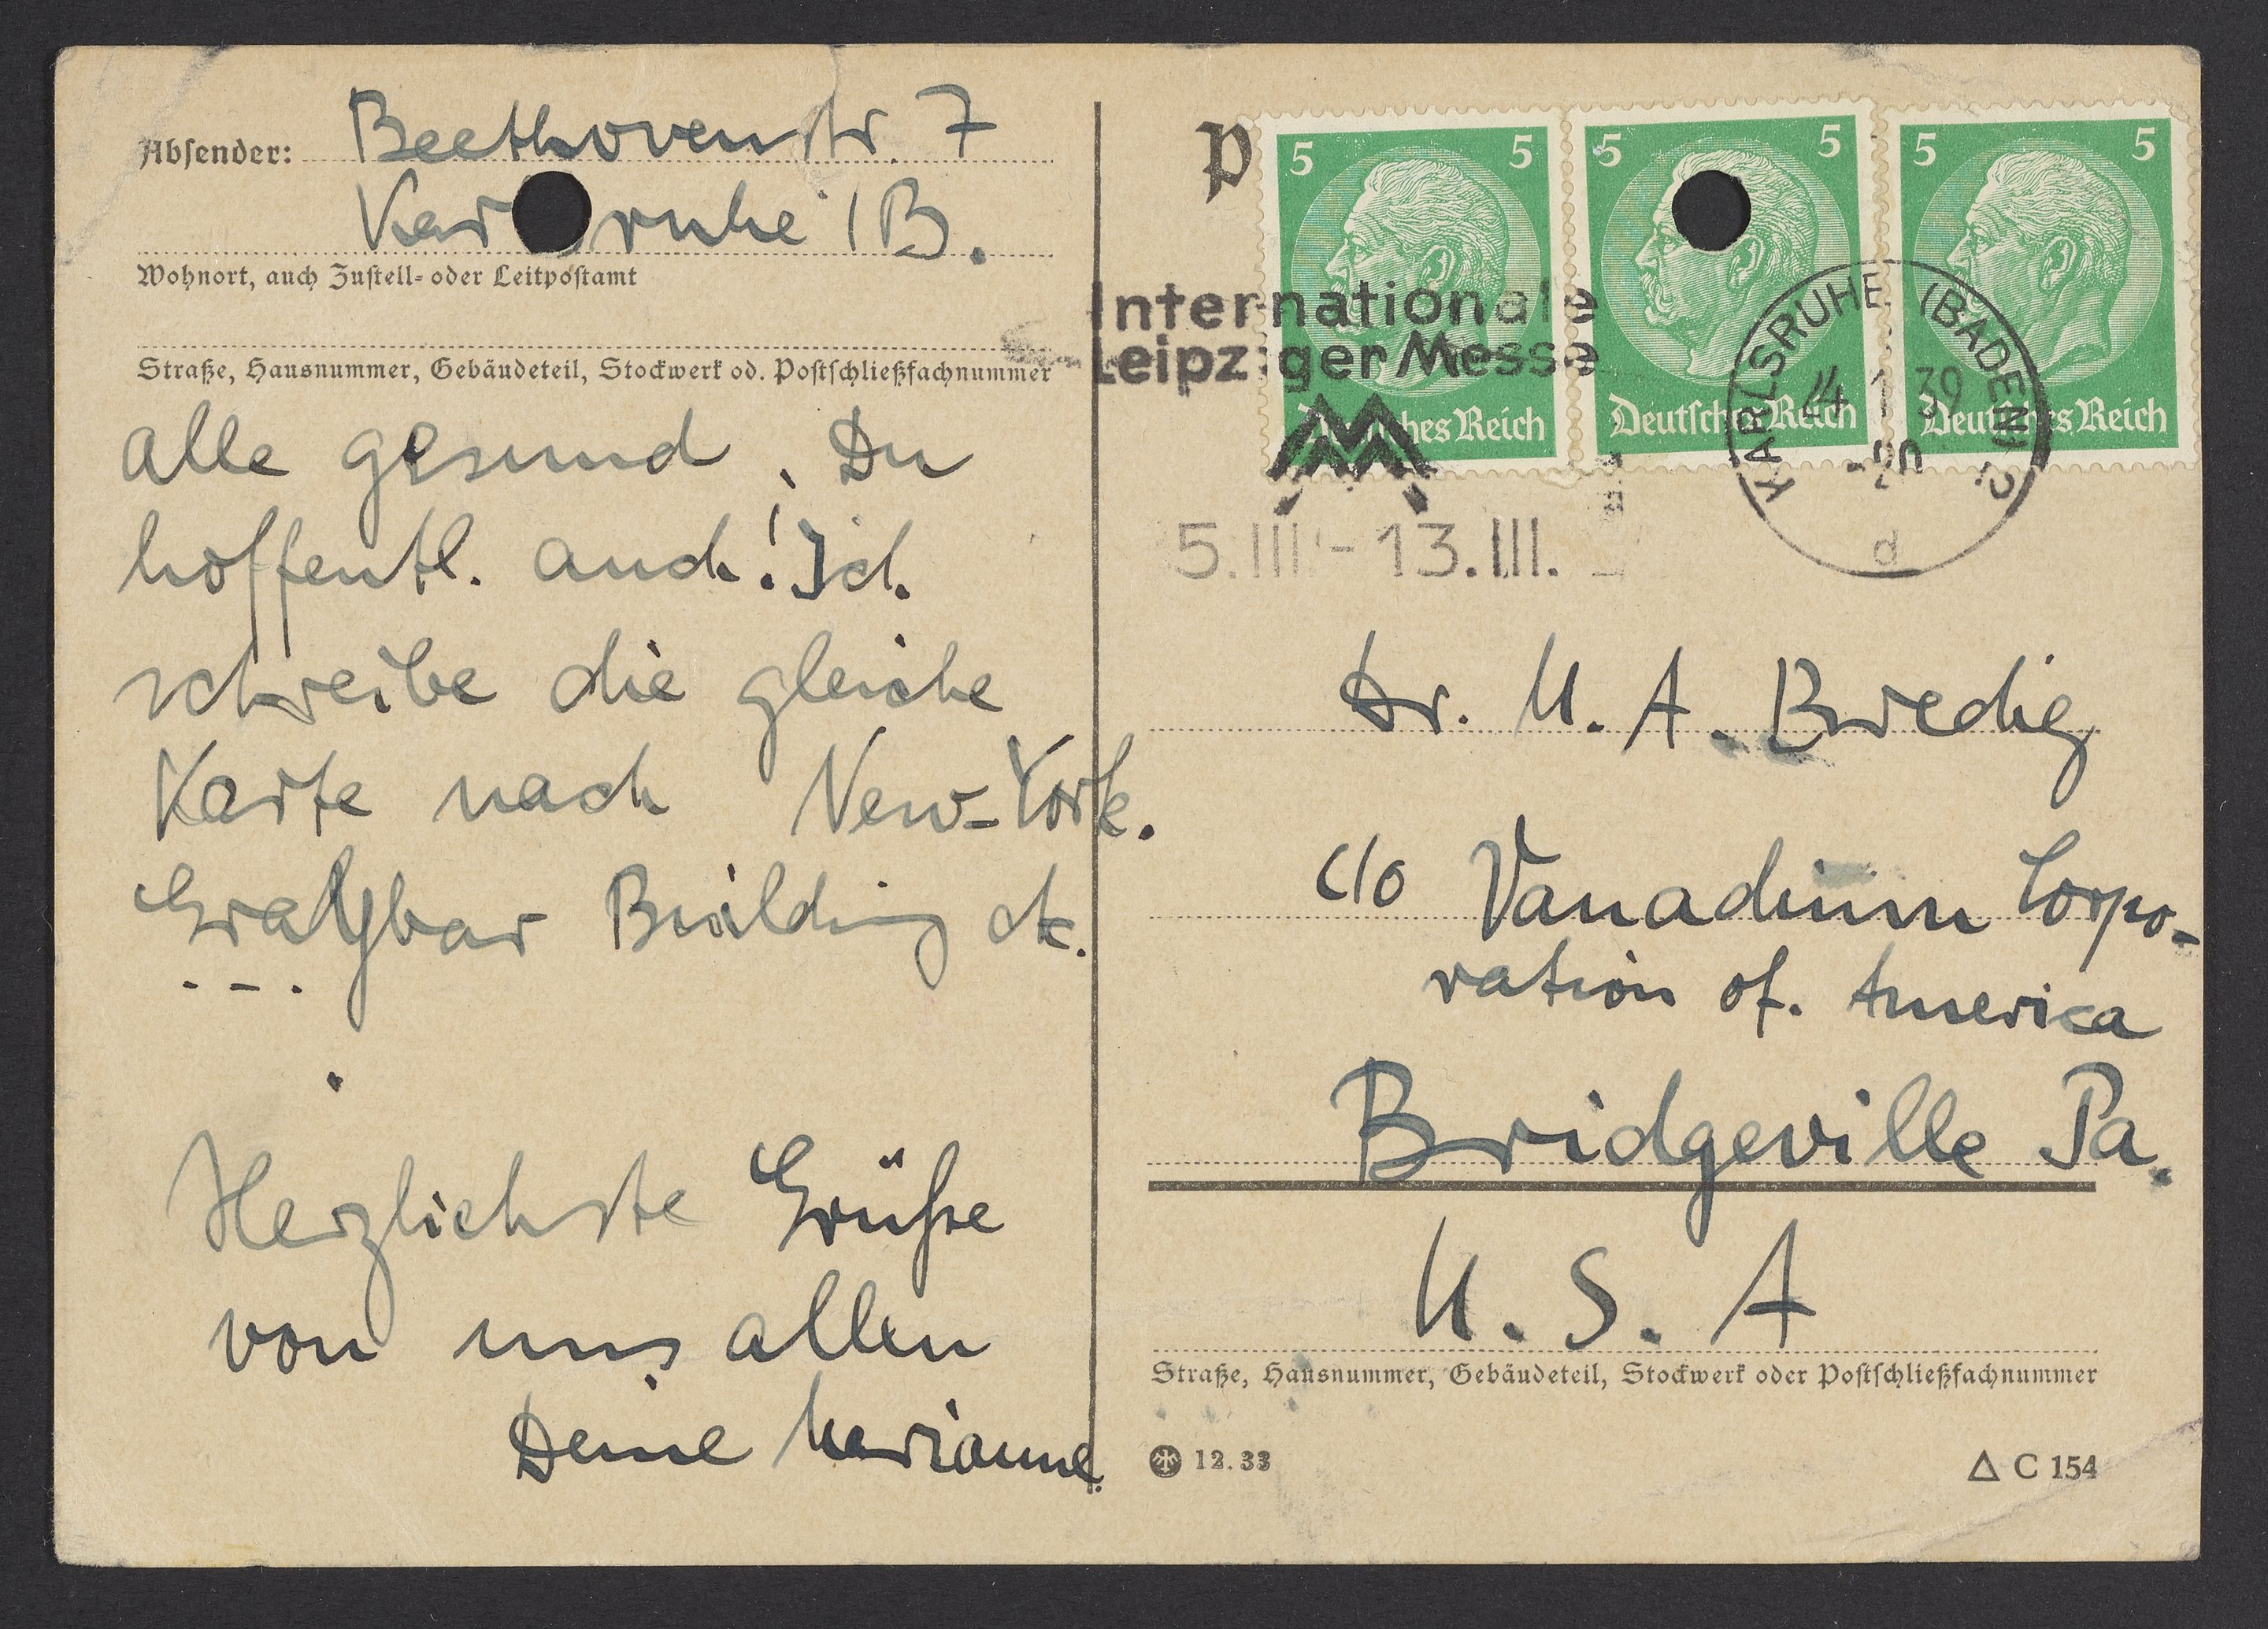 Absender: Beethovenstr. 7
Karlsruhe i/B.
Wohnort, auch Zustell- oder Leitpostamt
Straße, Hausnummer, Gebäudeteil, Stockwerk od. Postschließfachnummer
alle gesund, Du
hoffentl. auch! Ich
schreibe die gleiche
Karte nach New-York.
Graybar Building etc.
Herzlichste Grüße
von uns allen
Deine Marianne.
P
5 5
5 5
5 5
Deutsches Reich
Deutsches Reich
Deutsches Reich
Internationale
Leipziger Messe
5.III.-13.III.
KARLSRUHE (BADEN) 2
1 39
d
Dr. M. A. Bredig
c/o Vanadium Corpo-
ration of. America
Bridgeville Pa.
U. S. A
Straße, Hausnummer, Gebäudeteil, Stockwerk oder Postschließfachnummer
12. 33
△ C 154